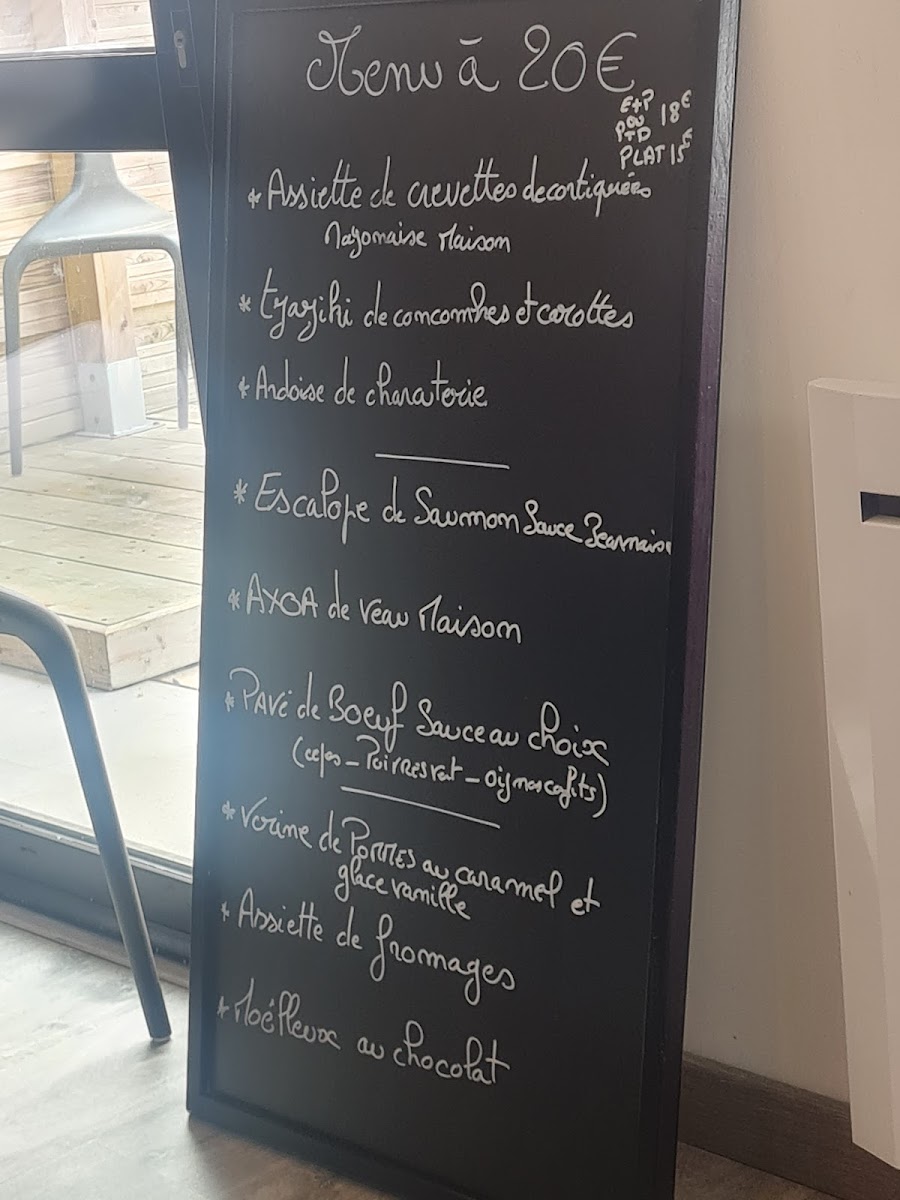 Menu à 20€
E+P
ou 18€
P+D
PLAT 15€
* Assiette de crevettes decortiquées
Mayonaise Maison
* Tzazihi de concombres et carottes
* Ardoise de charcuterie
* Escalope de Saumon Sauce Bearnaise
* AXOA de Veau Maison
* Pavé de Boeuf Sauce au choix
(cepes - Poivre vert - Oignons confits)
* Verrine de Pommes au caramel et
glace vanille
* Assiette de fromages
* Moëlleux au chocolat